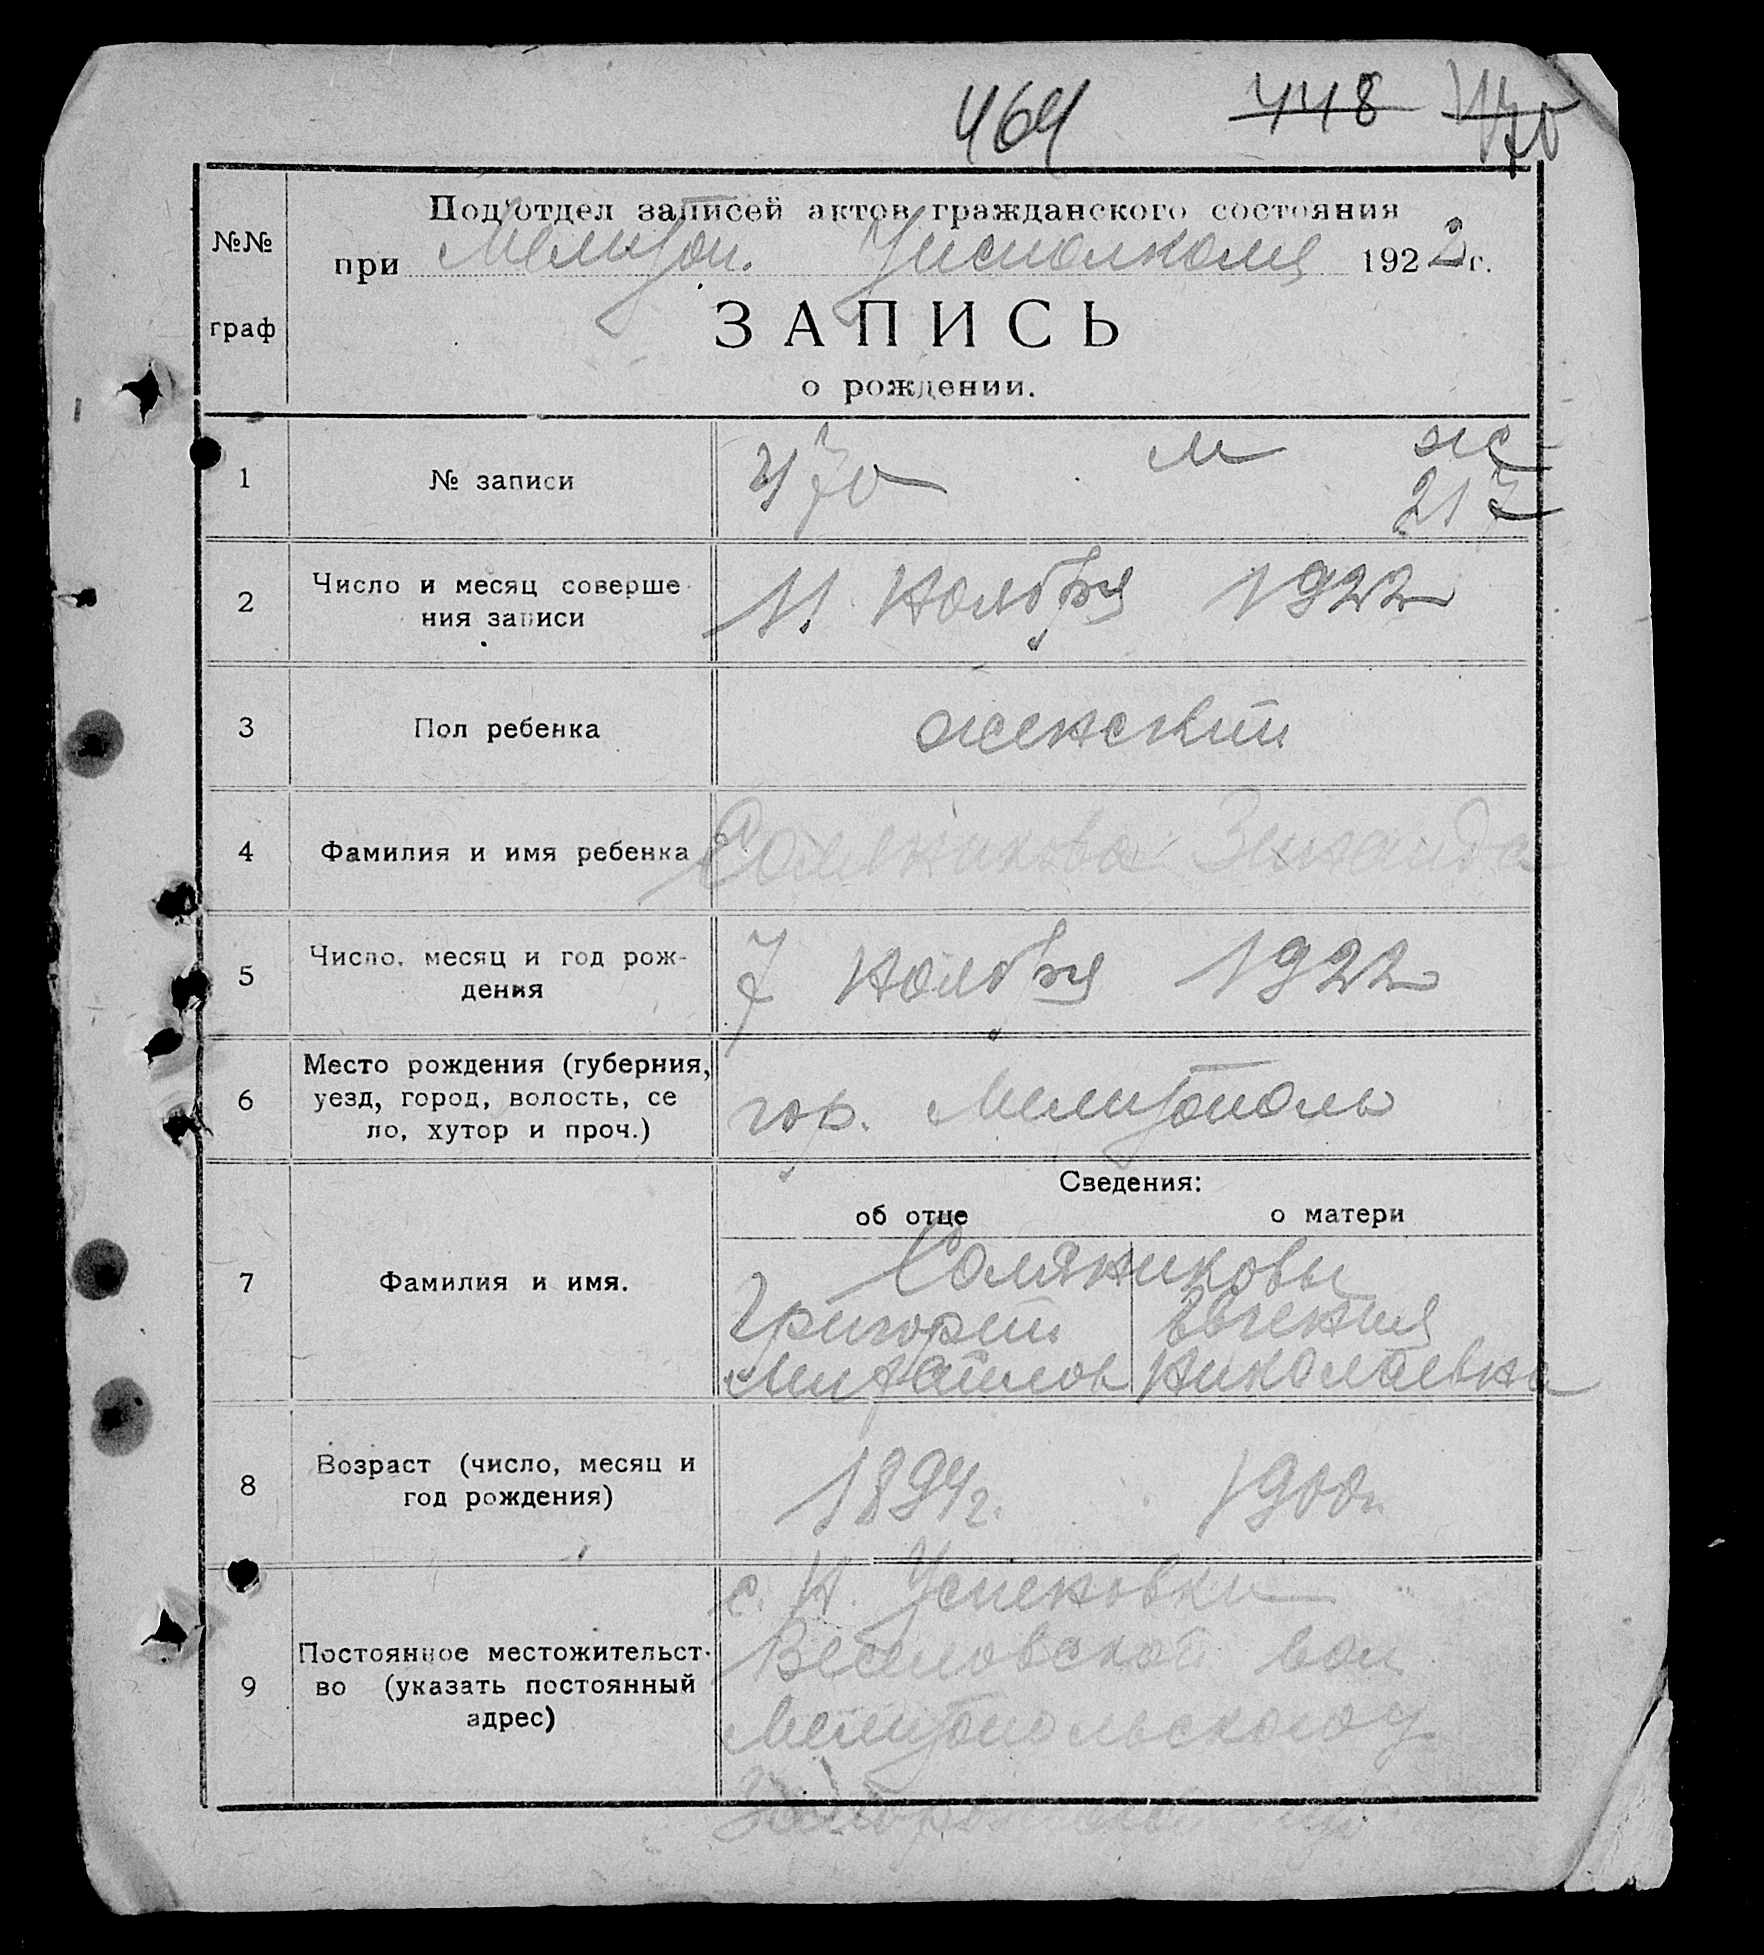 464 448 470
Подотдел записей актов гражданского состояния
при Мелитоп. Уисполкома 1922 г.
№№
граф
ЗАПИСЬ
о рождении.
1 № записи 470 м ж
217
2 Число и месяц соверше
ния записи
11 Ноября 1922
3 Пол ребенка женский
4 Фамилия и имя ребенка Соляникова Зинаида
5 Число, месяц и год рож-
дения
7 Ноября 1922
6 Место рождения (губерния,
уезд, город, волость, се
ло, хутор и проч.)
гор. Мелитополь
Сведения:
об отце о матери
7 Фамилия и имя.
Соляниковы
Григорий Евгения
Михайлов Николаевна
8 Возраст (число, месяц и
год рождения)
1894г. 1900г.
9 Постоянное местожительст-
во (указать постоянный
адрес)
с. Н. Успеновки
Веселовской вол
Мелитопольского у
Запорожской губ.